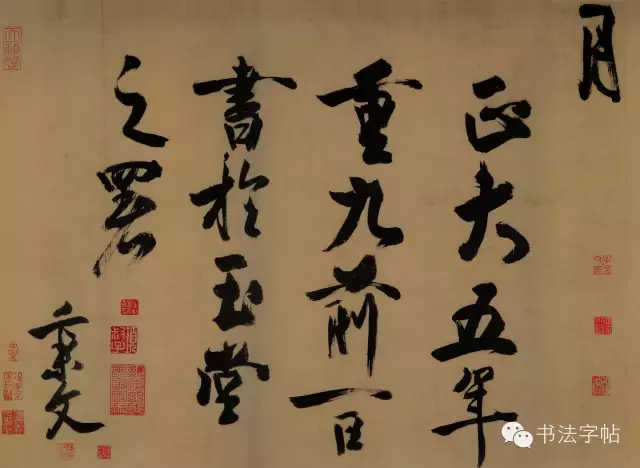 月
正大五年
重九前一日
書於玉堂
之署
秉文
书法字帖